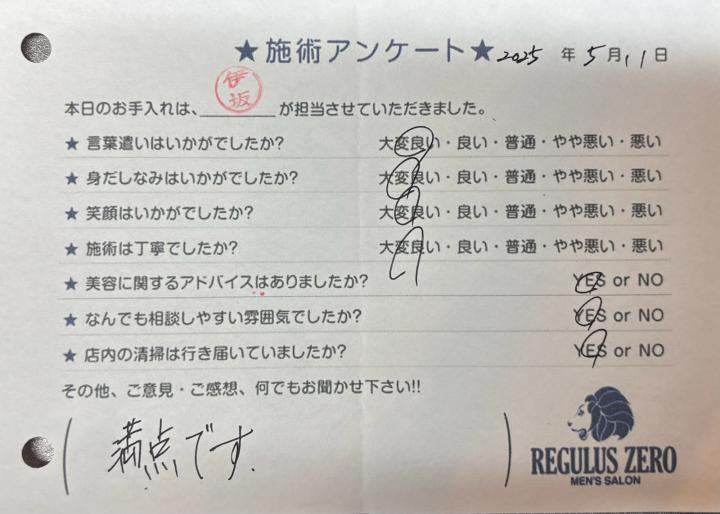 ★施術アンケート★ 2025 年 5 月 11 日
本日のお手入れは、 伊坂 が担当させていただきました。
★ 言葉遣いはいかがでしたか? 大変良い・良い・普通・やや悪い・悪い
★ 身だしなみはいかがでしたか? 大変良い・良い・普通・やや悪い・悪い
★ 笑顔はいかがでしたか? 大変良い・良い・普通・やや悪い・悪い
★ 施術は丁寧でしたか? 大変良い・良い・普通・やや悪い・悪い
★ 美容に関するアドバイスはありましたか? YES or NO
★ なんでも相談しやすい雰囲気でしたか? YES or NO
★ 店内の清掃は行き届いていましたか? YES or NO
その他、ご意見・ご感想、何でもお聞かせ下さい!!
満点です.
REGULUS ZERO
MEN'S SALON